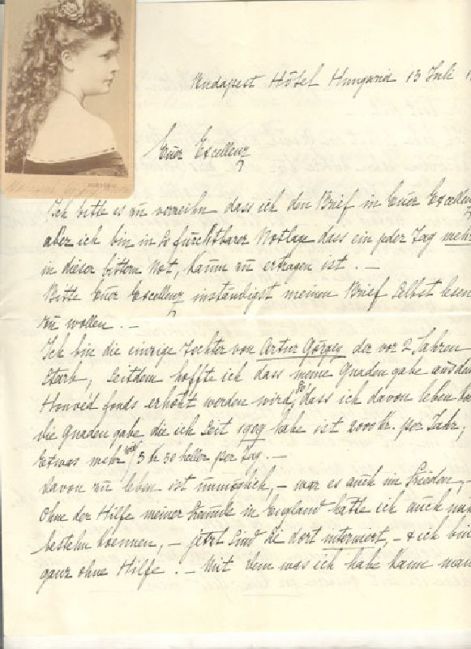 Budapest Hôtel Hungaria 13 Juli
Euer Excellenz
Ich bitte es zu verzeihn dass ich den Brief in Euer Excellenz
aber ich bin in so furchtbarer Notlage dass ein jeder Tag mehr
in dieser bittern Not, kaum zu ertragen ist. —
Bitte Euer Excellenz inständigst meinen Brief selbst lesen
zu wollen. —
Ich bin die einzige Tochter von Artur Görgey, der vor 2 Jahren
starb, seitdem hoffte ich dass meine Gnaden gabe aus dem
Honvéd fonds erhöht werden wird, so dass ich davon leben
die Gnaden gabe, die ich seit 1909 habe ist 2000 Kr. per Jahr,
etwas mehr wie 3 kr 30 heller per Tag. —
davon zu leben ist unmöglich, — war es auch im Frieden, —
Ohne der Hilfe meiner Freunde in England hätte ich auch
bestehn koennen, — jetzt sind die dort interniert, — & ich bin
ganz ohne Hilfe. — Mit dem was ich habe kann man